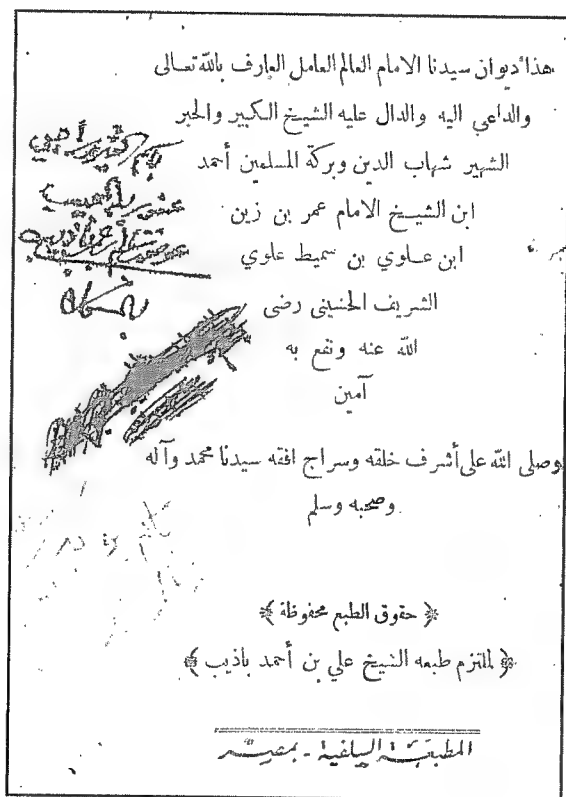 هذا ديوان سيدنا الامام العالم العامل العارف بالله تعالى
والداعي اليه والدال عليه الشيخ الكبير والحبر
الشهير شهاب الدين وبركة المسلمين أحمد
ابن الشيخ الامام عمر بن زين
ابن علوي بن سميط علوي
الشريف الحسيني رضى
الله عنه ونفع به
آمين
وصلى الله على أشرف خلقه وسراج افقه سيدنا محمد وآله
وصحبه وسلم
﴿ حقوق الطبع محفوظة ﴾
﴿ لملتزم طبعه الشيخ علي بن أحمد باذيب ﴾
المطبعة السلفية - بمصر